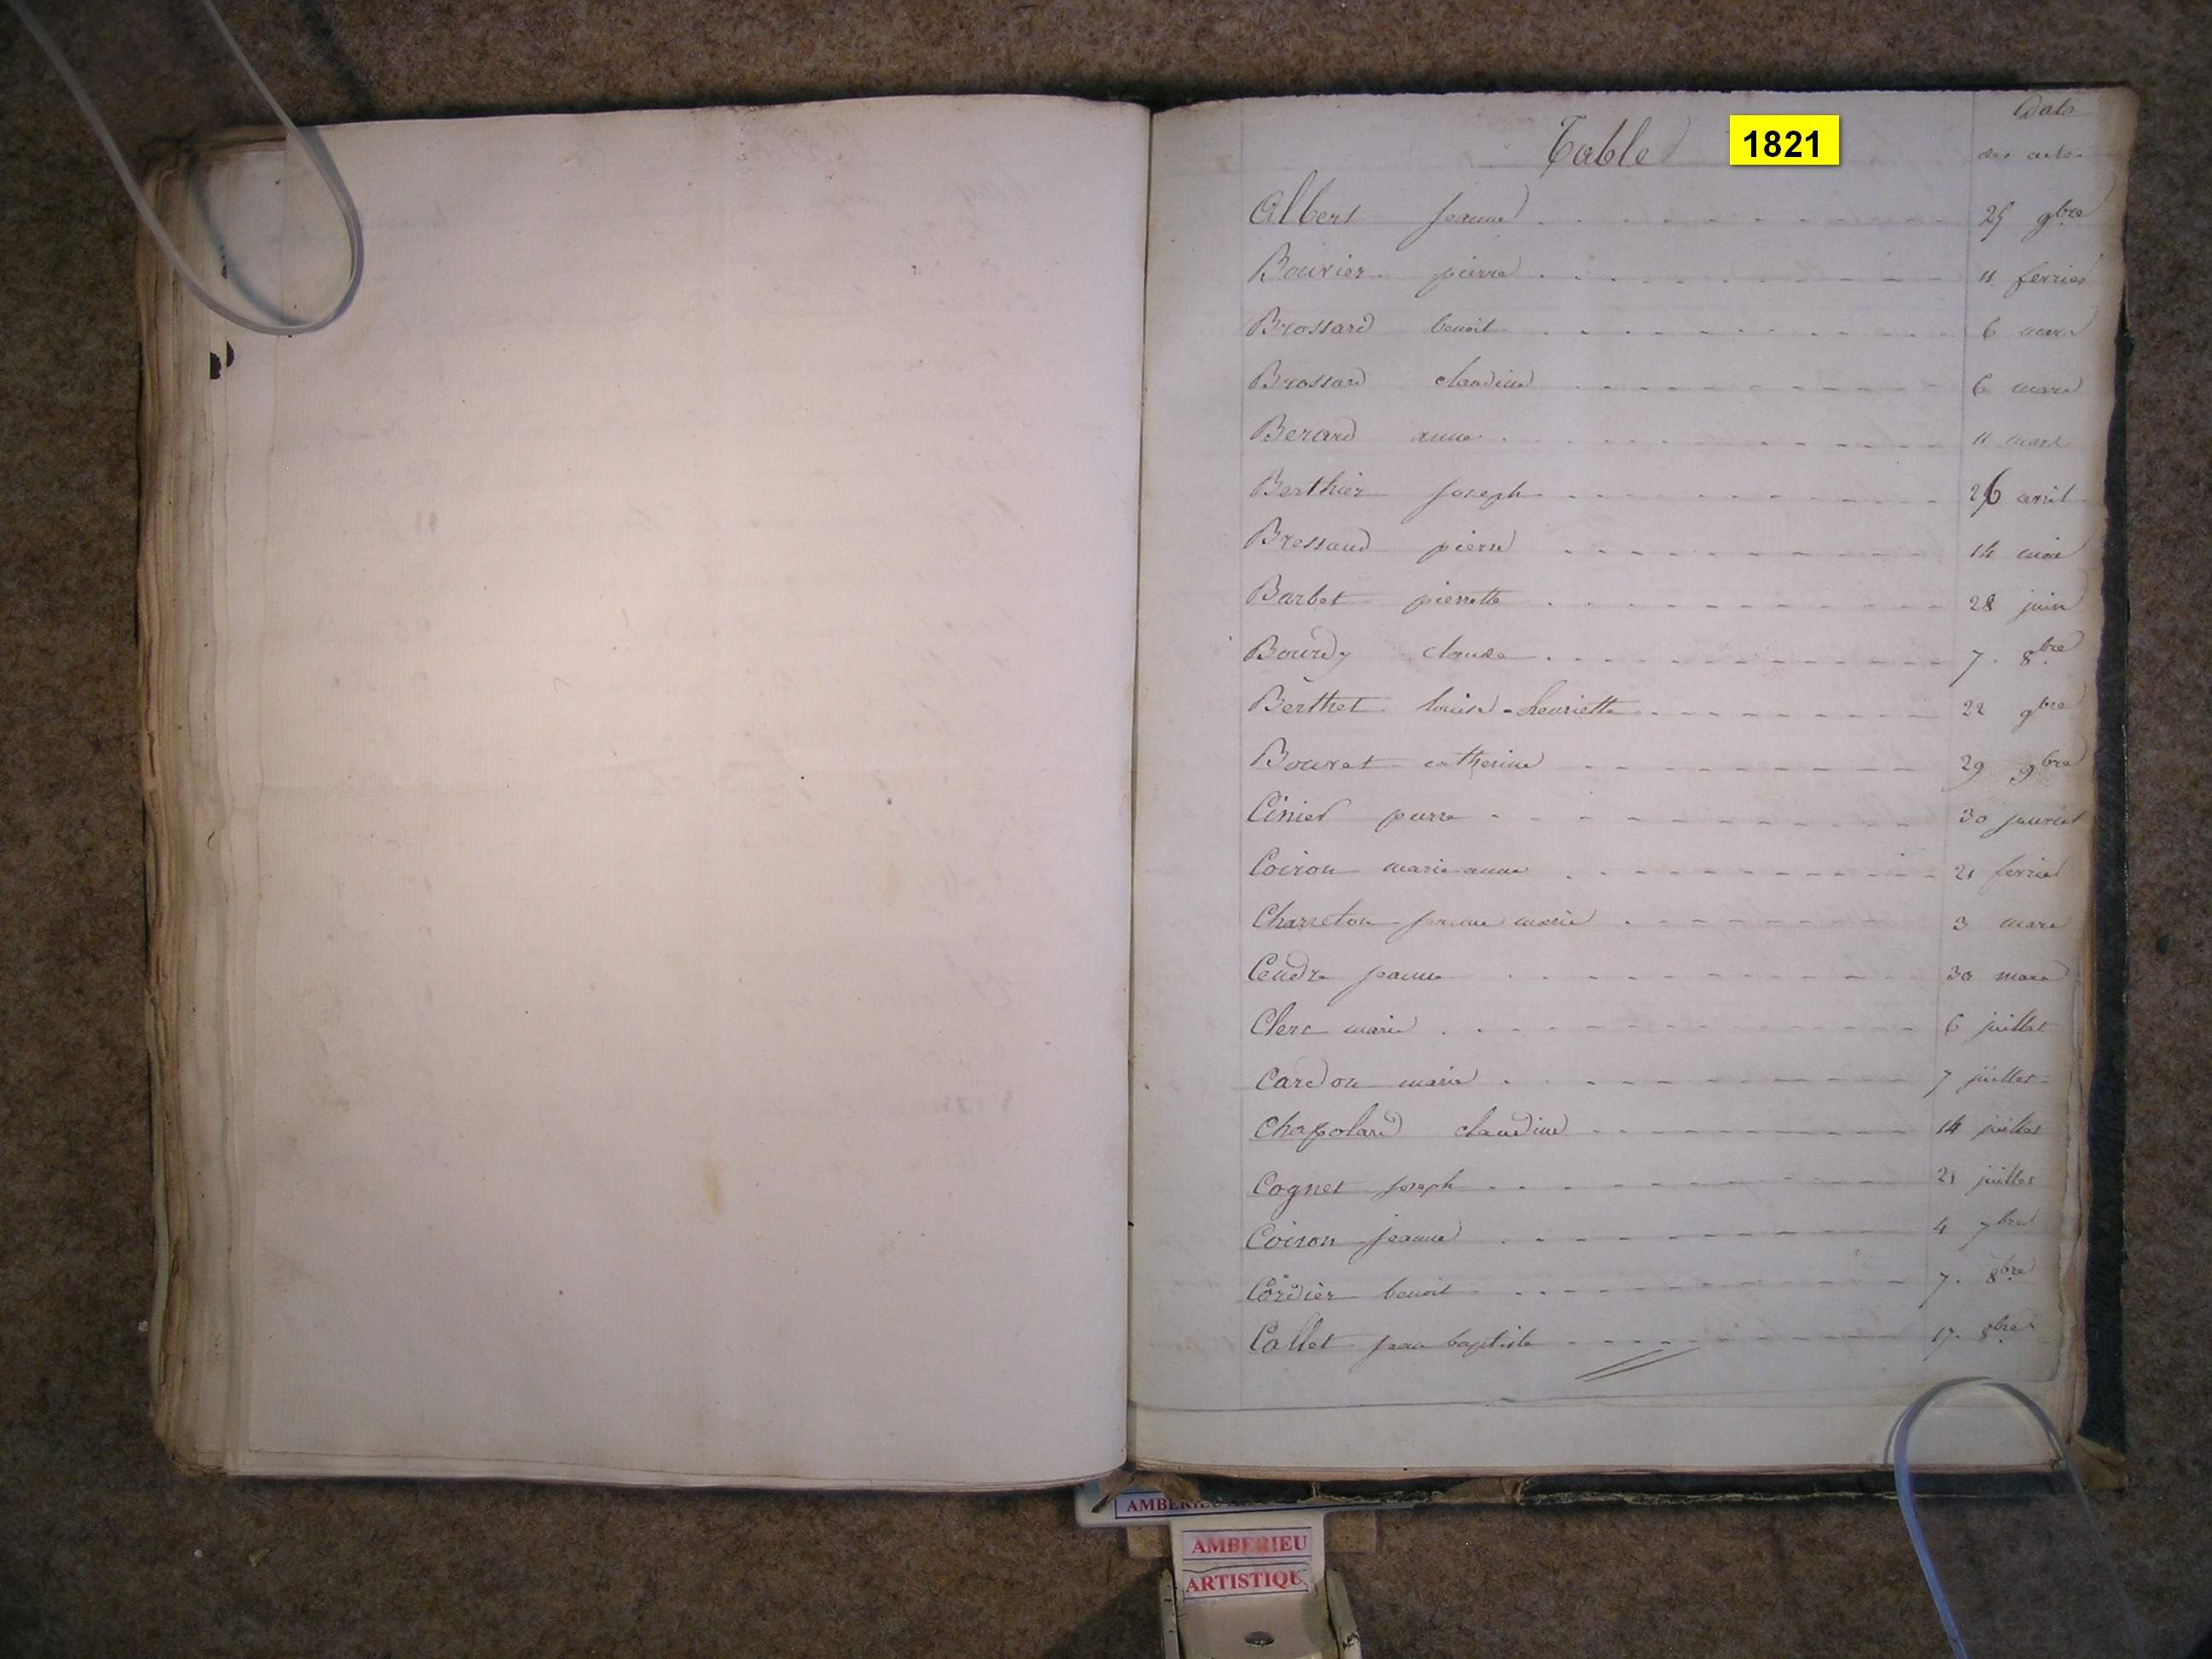 Date
Table 1821
des actes
Albert jeanne 25 9bre
Bouvier pierre 11 fevrier
Brossard benoit 6 mars
Brossard claudine 6 mars
Berard anne 11 mars
Berthier joseph 26 avril
Bressand pierre 14 mai
Barbet pierrette 28 juin
Bourdy claude 7. 8bre
Berthet louise-henriette 22 9bre
Bouvet catherine 29 9bre
Cinier pierre 30 janvier
Coiron marie anne 21 fevrier
Charreton jeanne marie 3 mars
Cendre jeanne 30 mars
Clerc marie 6 juillet
Cardon marie 7 juillet
Chapolard claudine 14 juillet
Cognet joseph 21 juillet
Coiron jeanne 4 7bre
Cordier benoit 7. 8bre
Collet jean baptiste 17. 8bre
AMBERIEU
AMBERIEU
ARTISTIQU